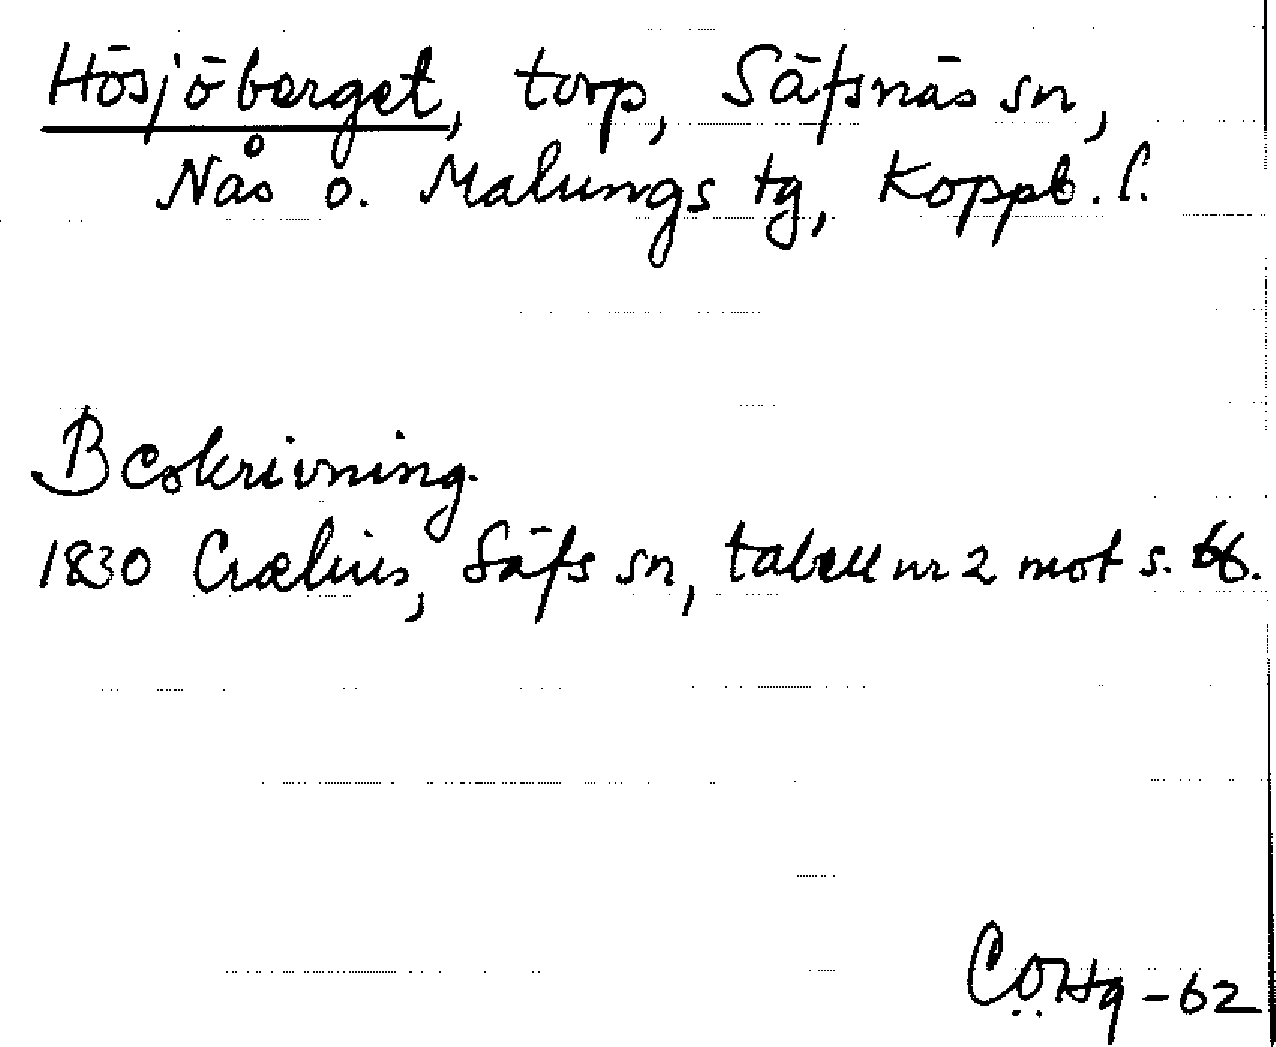 Hösjöberget, torp, Säfsnäs sn,
Nås o. Malungs tg, Koppb. l.
Beskrivning.
1830 Crælius, Säfs sn, tabell nr 2 mot s.
-62